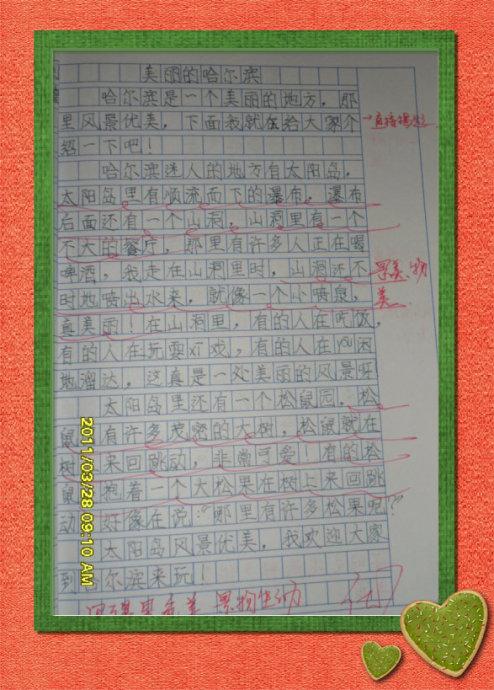 美丽的哈尔滨
哈尔滨是一个美丽的地方，那
里风景优美，下面我就在给大家介
绍一下吧！
哈尔滨迷人的地方有太阳岛，
太阳岛里有顺流而下的瀑布，瀑布
后面还有一个山洞，山洞里有一个
不大的餐厅，那里有许多人正在喝
啤酒，我走在山洞里时，山洞还不
时地喷出水来，就像一个小喷泉，
真美丽！在山洞里，有的人在吃饭，
有的人在玩耍xī戏，有的人在you闲
地溜达，这真是一处美丽的风景呀
太阳岛里还有一个松鼠园，松
鼠 有许多茂密的大树，松鼠就在
树 来回跳动，非常可爱！有的松
鼠 抱着一个大松果在树上来回跳
动 好像在说：“哪里有许多松果呢？”
太阳岛风景优美，我欢迎大家
到哈尔滨来玩！
2011/03/28 09:10 AM